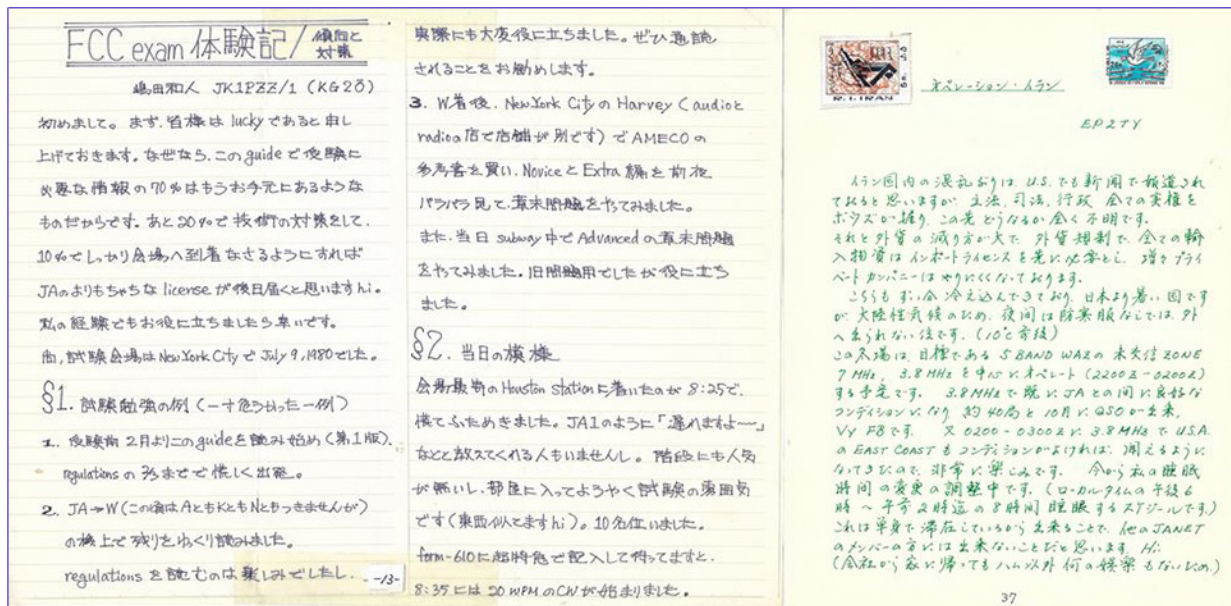 FCC exam 体験記/傾向と対策
嶋田和人 JK1PZZ/1 (KG2O)
初めまして。まず、皆様は lucky であると申し
上げておきます。なぜなら、この guide で受験に
必要な情報の 70% はもうお手元にあるような
ものだからです。あと20%で技術の対策をして、
10%でしっかり会場へ到着なさるようにすれば
JAのよりもちゃちな license が後日届くと思いますhi。
私の経験でもお役に立ちましたら幸いです。
尚、試験会場は New York City で July 9, 1980 でした。
§1. 試験勉強の例 (一寸危うかった一例)
1. 受験前2月よりこの guide を読み始め (第1版)、
regulations の 2/3 までで慌しく出発。
2. JA→W (この頃はAともKともNともつきませんが)
の機上で残りをゆっくり読みました。
regulations を読むのは楽しみでしたし、
-13-
実際にも大変役に立ちました。ぜひ通読
されることをお勧めします。
3. W着後、New York City の Harvey (audioと
radioの店で店舗が別です) で AMECO の
参考書を買い、Novice と Extra 編を前夜
パラパラ見て、章末問題をやってみました。
また、当日 subway 中で Advanced の章末問題
をやってみました。旧問題用でしたが役に立ち
ました。
§2. 当日の模様
会場最寄の Houston station に着いたのが 8:25で、
慌てふためきました。JA1のように「遅れますよ〜」
などと教えてくれる人もいませんし。階段にも人気
が無いし、部屋に入ってようやく試験の雰囲気
です (東西似てますhi)。10名位いました。
form-610に超特急で記入して待ってますと、
8:35 には 20 WPM の CW が始まりました。
R.I. IRAN
オペレーション・イラン
EP2TY
イラン国内の混乱ぶりは、U.S. でも新聞で報道され
ておると思いますが、立法、司法、行政 全ての実権を
ボウズが握り、この先どうなるか全く不明です。
それと外貨の減り方が大で、外貨規制で、全ての輸
入物資はインポートライセンスを先に必要とし、増々プライ
ベートカンパニーはやりにくくなっております。
こちらもずい分冷え込んできており、日本より暑い国です
が、大陸性気候のため、夜間は防寒服なしでは、外
へ出られない位です。(10℃前後)
この冬場は、目標である 5 BAND WAZ の未交信 ZONE
7 MHz, 3.8 MHz を中心に オペレート (2200Z-0200Z)
する予定です。 3.8 MHz で既に JA との間に良好な
コンディションになり 約40局と10月に QSO が出来、
Vy FB です。 又 0200-0300Z に 3.8 MHz で U.S.A.
の EAST COAST も コンディションがよければ、聞えるように
なってきたので、非常に楽しみです。 今から私の睡眠
時間の変更の調整中です。(ローカルタイムの午後6
時〜午前2時迄の8時間睡眠するスケジールです。)
これは単身で滞在しているから出来ることで、他のJANET
のメンバーの方には出来ないことだと思います。Hi
(会社から家に帰ってもハム以外何の娯楽もないため。)
37